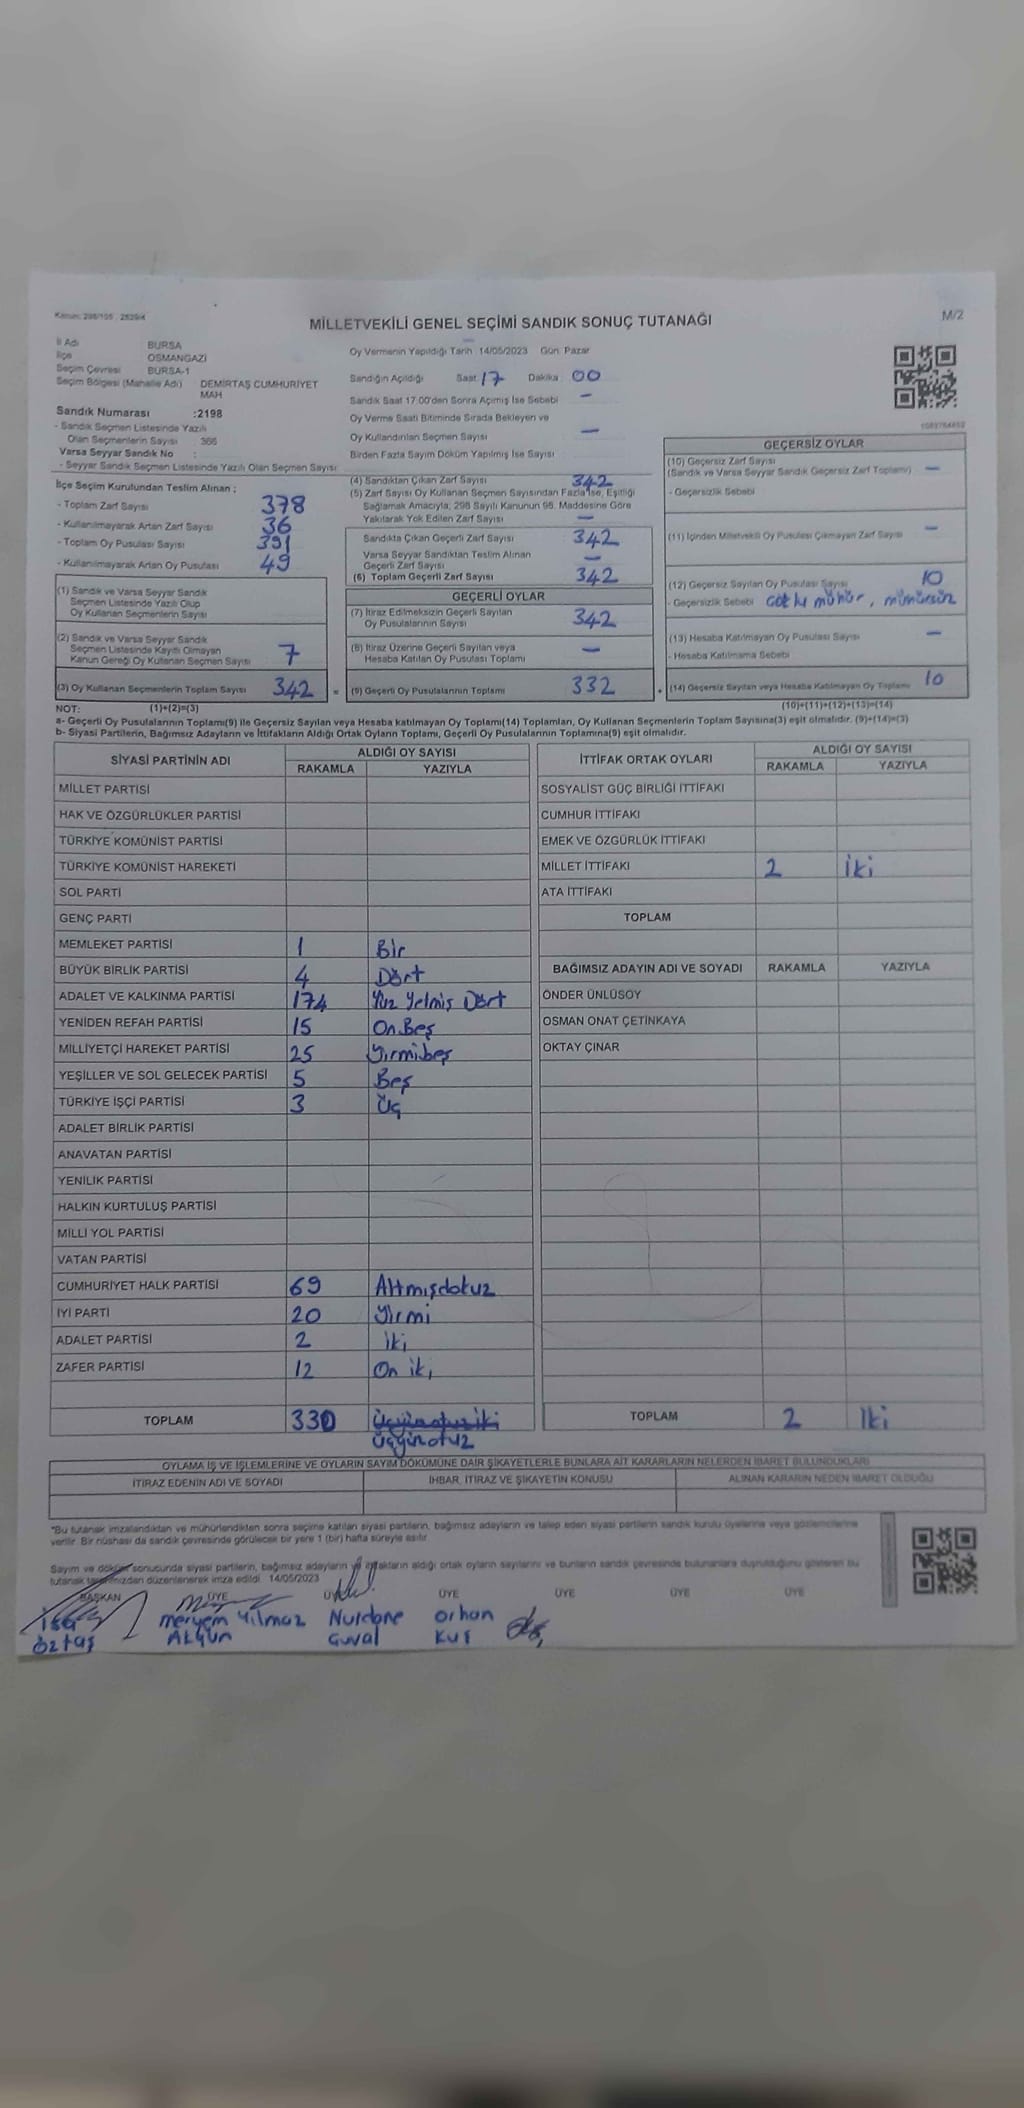 Kanun: 298/105 2839/4
MİLLETVEKİLİ GENEL SEÇİMİ SANDIK SONUÇ TUTANAĞI
M/2
İl Adı BURSA
İlçe OSMANGAZİ
Seçim Çevresi BURSA-1
Seçim Bölgesi (Mahalle Adı) DEMİRTAŞ CUMHURİYET MAH
Sandık Numarası :2198
- Sandık Seçmen Listesinde Yazılı
Olan Seçmenlerin Sayısı : 366
Varsa Seyyar Sandık No :
- Seyyar Sandık Seçmen Listesinde Yazılı Olan Seçmen Sayısı
Oy Vermenin Yapıldığı Tarih 14/05/2023 Gün: Pazar
Sandığın Açıldığı Saat 17 Dakika 00
Sandık Saat 17:00'den Sonra Açımış İse Sebebi —
Oy Verme Saati Bitiminde Sırada Bekleyen ve
Oy Kullandırılan Seçmen Sayısı —
Birden Fazla Sayım Döküm Yapılmış İse Sayısı
İlçe Seçim Kurulundan Teslim Alınan ;
- Toplam Zarf Sayısı 378
- Kullanılmayarak Artan Zarf Sayısı 36
- Toplam Oy Pusulası Sayısı 391
- Kullanılmayarak Artan Oy Pusulası 49
(1) Sandık ve Varsa Seyyar Sandık
Seçmen Listesinde Yazılı Olup
Oy Kullanan Seçmenlerin Sayısı
(2) Sandık ve Varsa Seyyar Sandık
Seçmen Listesinde Kayıtlı Olmayan
Kanun Gereği Oy Kullanan Seçmen Sayısı 7
(3) Oy Kullanan Seçmenlerin Toplam Sayısı 342 =
(4) Sandıktan Çıkan Zarf Sayısı 342
(5) Zarf Sayısı Oy Kullanan Seçmen Sayısından Fazla İse, Eşitliği
Sağlamak Amacıyla; 298 Sayılı Kanunun 98. Maddesine Göre
Yakılarak Yok Edilen Zarf Sayısı —
Sandıkta Çıkan Geçerli Zarf Sayısı 342
Varsa Seyyar Sandıktan Teslim Alınan
Geçerli Zarf Sayısı —
(6) Toplam Geçerli Zarf Sayısı 342
GEÇERLİ OYLAR
(7) İtiraz Edilmeksizin Geçerli Sayılan
Oy Pusulalarının Sayısı 342
(8) İtiraz Üzerine Geçerli Sayılan veya
Hesaba Katılan Oy Pusulası Toplamı —
(9) Geçerli Oy Pusulalarının Toplamı 332 +
GEÇERSİZ OYLAR
(10) Geçersiz Zarf Sayısı
(Sandık ve Varsa Seyyar Sandık Geçersiz Zarf Toplamı) —
- Geçersizlik Sebebi
(11) İçinden Milletvekili Oy Pusulası Çıkmayan Zarf Sayısı —
(12) Geçersiz Sayılan Oy Pusulası Sayısı 10
- Geçersizlik Sebebi
(13) Hesaba Katılmayan Oy Pusulası Sayısı —
- Hesaba Katılmama Sebebi
(14) Geçersiz Sayılan veya Hesaba Katılmayan Oy Toplamı 10
NOT: (1)+(2)=(3)
(10)+(11)+(12)+(13)=(14)
a- Geçerli Oy Pusulalarının Toplamı(9) ile Geçersiz Sayılan veya Hesaba katılmayan Oy Toplamı(14) Toplamları, Oy Kullanan Seçmenlerin Toplam Sayısına(3) eşit olmalıdır. (9)+(14)=(3)
b- Siyasi Partilerin, Bağımsız Adayların ve İttifakların Aldığı Ortak Oyların Toplamı, Geçerli Oy Pusulalarının Toplamına(9) eşit olmalıdır.
SİYASİ PARTİNİN ADI ALDIĞI OY SAYISI
RAKAMLA YAZIYLA
MİLLET PARTİSİ
HAK VE ÖZGÜRLÜKLER PARTİSİ
TÜRKİYE KOMÜNİST PARTİSİ
TÜRKİYE KOMÜNİST HAREKETİ
SOL PARTİ
GENÇ PARTİ
MEMLEKET PARTİSİ 1 Bir
BÜYÜK BİRLİK PARTİSİ 4 Dört
ADALET VE KALKINMA PARTİSİ 174 Yüz Yetmiş Dört
YENİDEN REFAH PARTİSİ 15 On Beş
MİLLİYETÇİ HAREKET PARTİSİ 25 Yirmibeş
YEŞİLLER VE SOL GELECEK PARTİSİ 5 Beş
TÜRKİYE İŞÇİ PARTİSİ 3 Üç
ADALET BİRLİK PARTİSİ
ANAVATAN PARTİSİ
YENİLİK PARTİSİ
HALKIN KURTULUŞ PARTİSİ
MİLLİ YOL PARTİSİ
VATAN PARTİSİ
CUMHURİYET HALK PARTİSİ 69 Altmışdokuz
İYİ PARTİ 20 Yirmi
ADALET PARTİSİ 2 iki
ZAFER PARTİSİ 12 On iki
TOPLAM 330 Üçyüzotuziki
Üçyüzotuz
İTTİFAK ORTAK OYLARI ALDIĞI OY SAYISI
RAKAMLA YAZIYLA
SOSYALİST GÜÇ BİRLİĞİ İTTİFAKI
CUMHUR İTTİFAKI
EMEK VE ÖZGÜRLÜK İTTİFAKI
MİLLET İTTİFAKI 2 İki
ATA İTTİFAKI
TOPLAM
BAĞIMSIZ ADAYIN ADI VE SOYADI RAKAMLA YAZIYLA
ÖNDER ÜNLÜSOY
OSMAN ONAT ÇETİNKAYA
OKTAY ÇINAR
TOPLAM 2 İki
OYLAMA İŞ VE İŞLEMLERİNE VE OYLARIN SAYIM DÖKÜMÜNE DAİR ŞİKAYETLERLE BUNLARA AİT KARARLARIN NELERDEN İBARET BULUNDUKLARI
İTİRAZ EDENİN ADI VE SOYADI İHBAR, İTİRAZ VE ŞİKAYETİN KONUSU ALINAN KARARIN NEDEN İBARET OLDUĞU
"Bu tutanak imzalandıktan ve mühürlendikten sonra seçime katılan siyasi partilerin, bağımsız adayların ve talep eden siyasi partilerin sandık kurulu üyelerine veya gözlemcilerine
verilir. Bir nüshası da sandık çevresinde görülecek bir yere 1 (bir) hafta süreyle asılır.
Sayım ve döküm sonucunda siyasi partilerin, bağımsız adayların ve ittifakların aldığı ortak oyların sayılarını ve bunların sandık çevresinde bulunanlara duyurulduğunu gösteren bu
tutanak tarafımızdan düzenlenerek imza edildi. 14/05/2023
BAŞKAN ÜYE ÜYE ÜYE ÜYE ÜYE ÜYE
İsa Meryem Yılmaz Nurdane Orhan
Öztaş Akgün Kuş